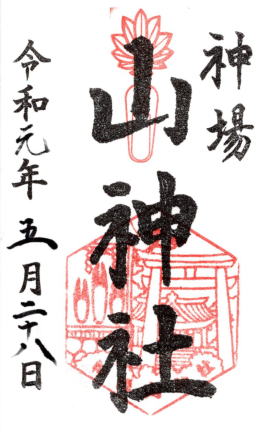 神場
山神社
令和元年五月二十八日